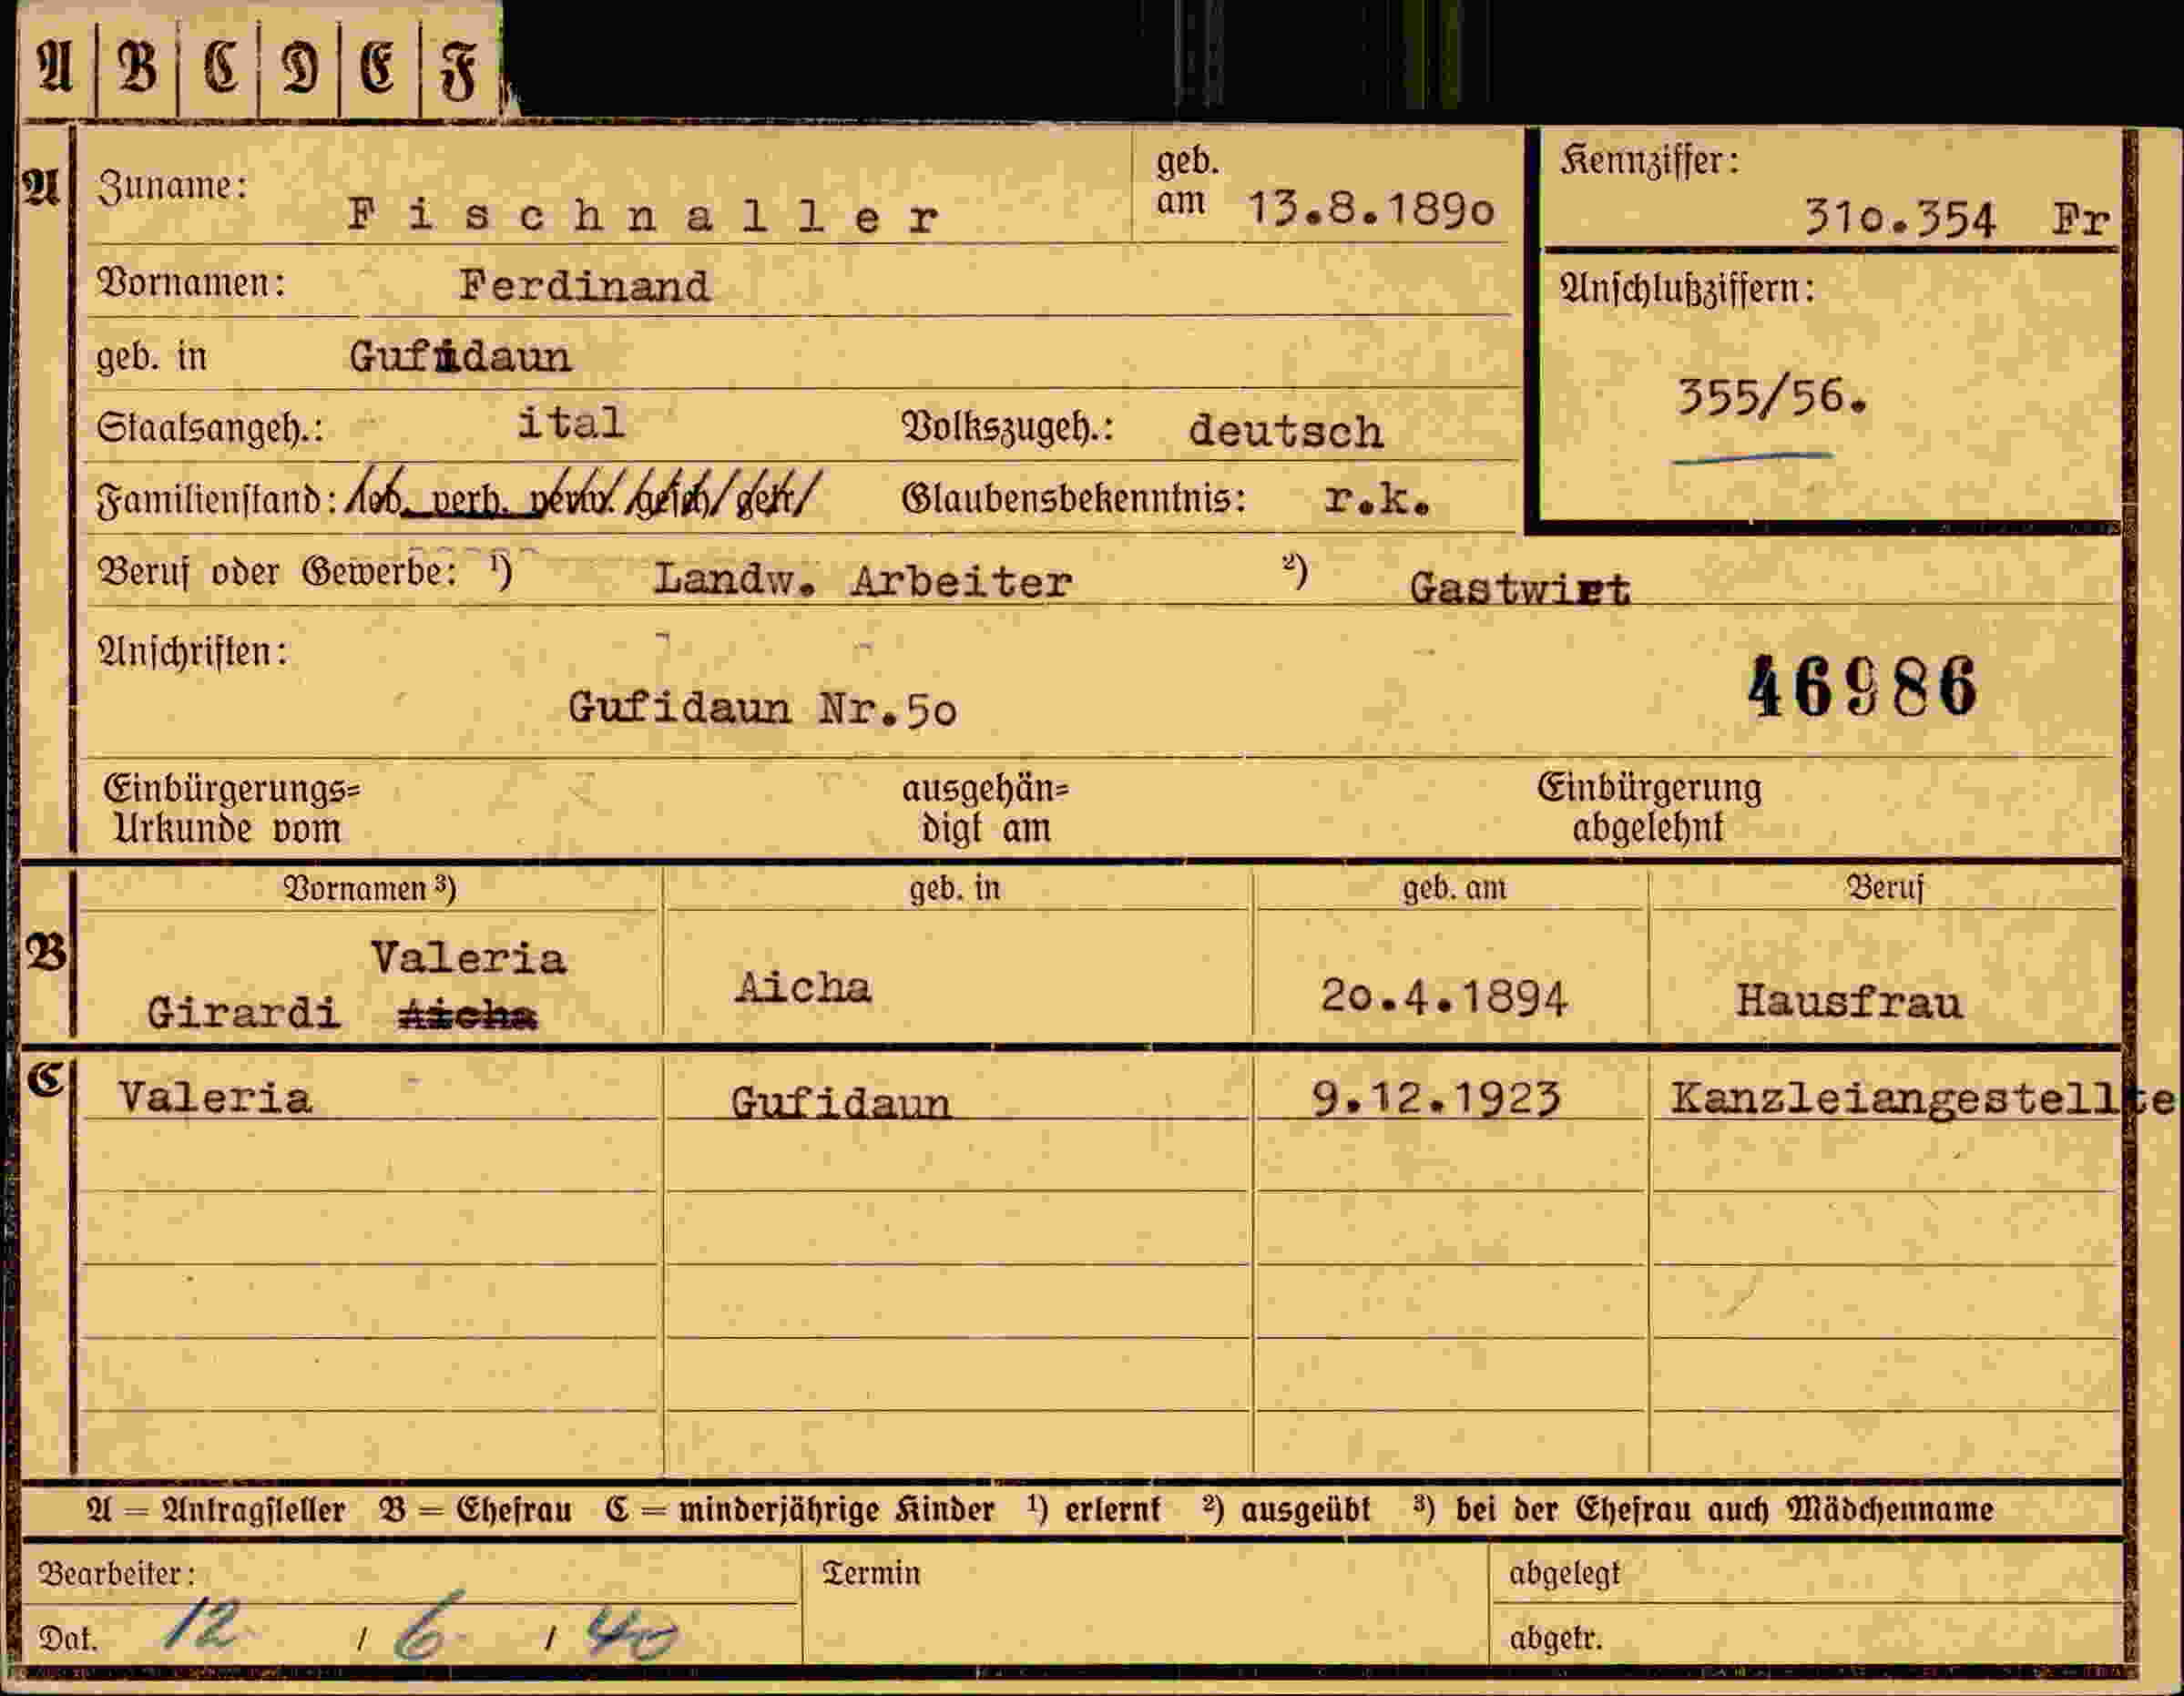 A B C D E F
A Zuname: Fischnaller geb. am 13.8.1890 Kennziffer: 310.354 Fr
Vornamen: Ferdinand Anschlußziffern:
geb. in Gufidaun 355/56.
Staatsangeh.: ital Volkszugeh.: deutsch
Familienstand: led. verh. verw. gesch. getr. Glaubensbekenntnis: r.k.
Beruf oder Gewerbe: ¹) Landw. Arbeiter ²) Gastwirt
Anschriften:
Gufidaun Nr.50 46986
Einbürgerungs= ausgehän= Einbürgerung
Urkunde vom digt am abgelehnt
Vornamen ³) geb. in geb. am Beruf
B Valeria
Girardi Aicha Aicha 20.4.1894 Hausfrau
C Valeria Gufidaun 9.12.1923 Kanzleiangestellte
A = Antragsteller B = Ehefrau C = minderjährige Kinder ¹) erlernt ²) ausgeübt ³) bei der Ehefrau auch Mädchenname
Bearbeiter: Termin abgelegt
Dat. 12 / 6 / 40 abgetr.